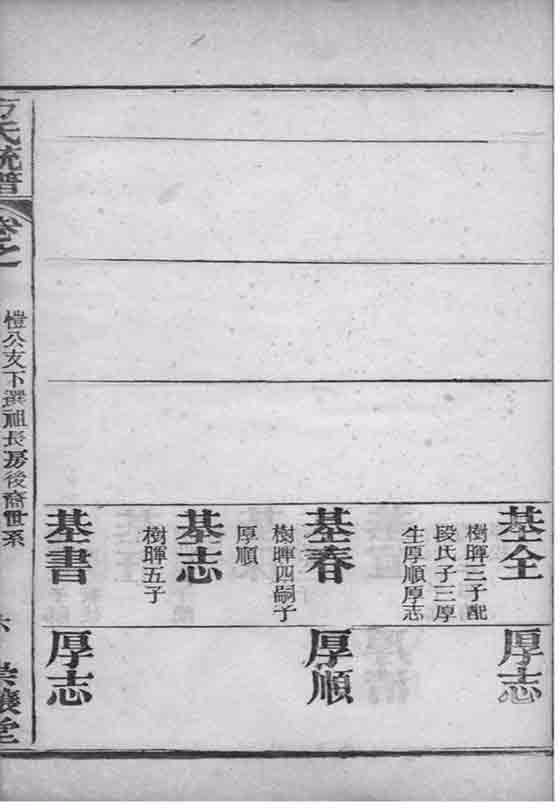 基全
樹暉二子配
段氏子三厚
生厚順厚志
基春
樹暉四嗣子
厚順
基志
樹暉五子
基書
厚志
厚順
厚志
氏統譜
卷之
愷公支下選祖長房後裔世系